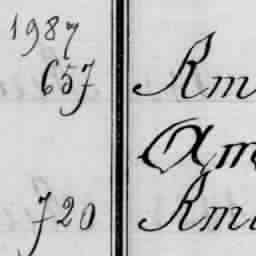 1987
657 Rm
Am
720 Rm